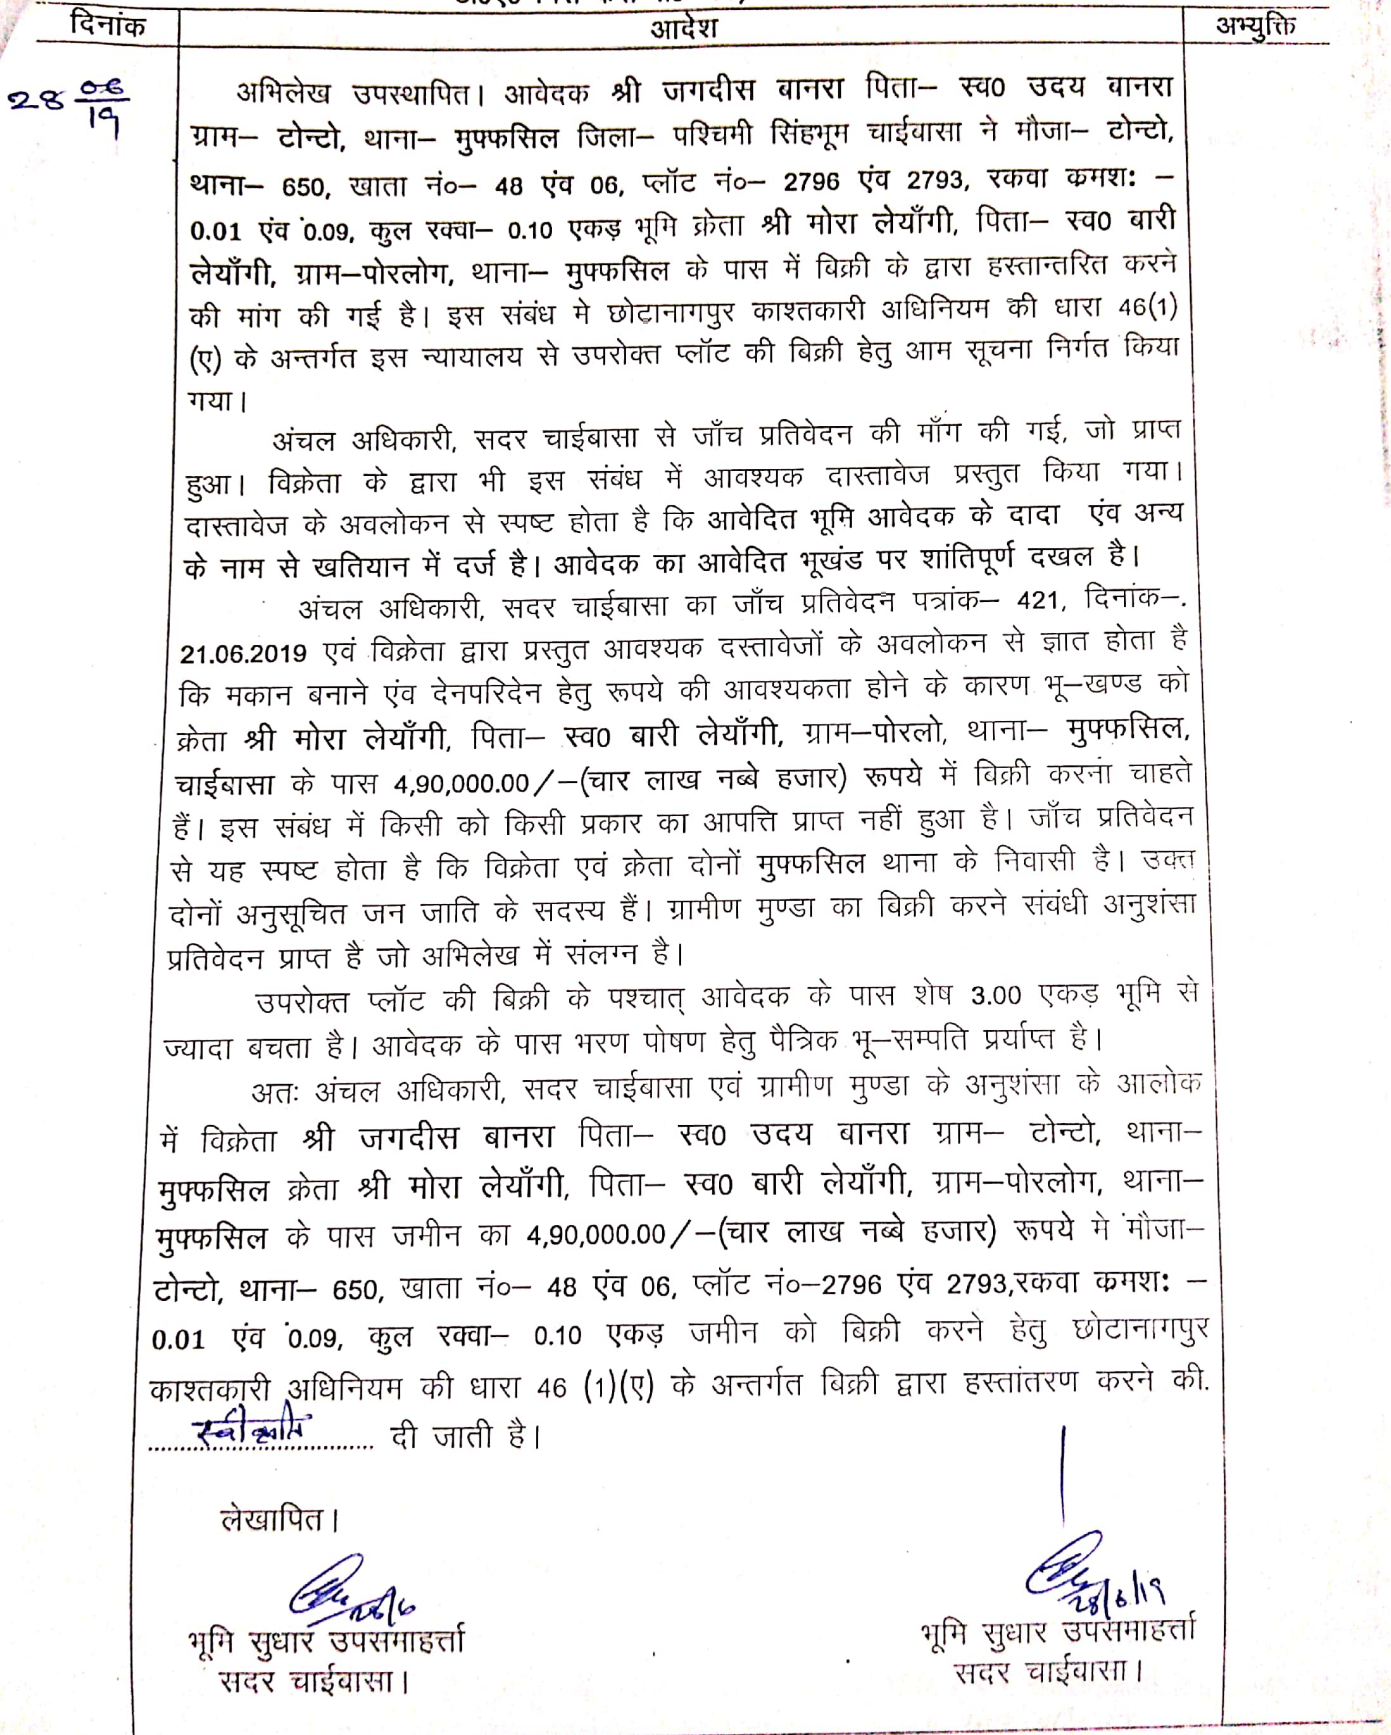 दिनांक आदेश अभ्युक्ति
28 06/19
अभिलेख उपस्थापित। आवेदक श्री जगदीस बानरा पिता– स्व0 उदय बानरा
ग्राम– टोन्टो, थाना– मुफ्फसिल जिला– पश्चिमी सिंहभूम चाईबासा ने मौजा– टोन्टो,
थाना– 650, खाता नं०– 48 एंव 06, प्लॉट नं०– 2796 एंव 2793, रकवा कमश: –
0.01 एंव 0.09, कुल रक्वा– 0.10 एकड़ भूमि क्रेता श्री मोरा लेयाँगी, पिता– स्व0 बारी
लेयाँगी, ग्राम–पोरलोग, थाना– मुफ्फसिल के पास में बिक्री के द्वारा हस्तान्तरित करने
की मांग की गई है। इस संबंध मे छोटानागपुर काश्तकारी अधिनियम की धारा 46(1)
(ए) के अन्तर्गत इस न्यायालय से उपरोक्त प्लॉट की बिक्री हेतु आम सूचना निर्गत किया
गया।
अंचल अधिकारी, सदर चाईबासा से जाँच प्रतिवेदन की माँग की गई, जो प्राप्त
हुआ। विक्रेता के द्वारा भी इस संबंध में आवश्यक दास्तावेज प्रस्तुत किया गया।
दास्तावेज के अवलोकन से स्पष्ट होता है कि आवेदित भूमि आवेदक के दादा एंव अन्य
के नाम से खतियान में दर्ज है। आवेदक का आवेदित भूखंड पर शांतिपूर्ण दखल है।
अंचल अधिकारी, सदर चाईबासा का जाँच प्रतिवेदन पत्रांक– 421, दिनांक–.
21.06.2019 एवं विक्रेता द्वारा प्रस्तुत आवश्यक दस्तावेजों के अवलोकन से ज्ञात होता है
कि मकान बनाने एंव देनपरिदेन हेतु रूपये की आवश्यकता होने के कारण भू–खण्ड को
क्रेता श्री मोरा लेयाँगी, पिता– स्व0 बारी लेयाँगी, ग्राम–पोरलो, थाना– मुफ्फसिल,
चाईबासा के पास 4,90,000.00/–(चार लाख नब्बे हजार) रूपये में बिक्री करना चाहते
हैं। इस संबंध में किसी को किसी प्रकार का आपत्ति प्राप्त नहीं हुआ है। जाँच प्रतिवेदन
से यह स्पष्ट होता है कि विक्रेता एवं क्रेता दोनों मुफ्फसिल थाना के निवासी है। उक्त
दोनों अनुसूचित जन जाति के सदस्य हैं। ग्रामीण मुण्डा का बिक्री करने संबंधी अनुशंसा
प्रतिवेदन प्राप्त है जो अभिलेख में संलग्न है।
उपरोक्त प्लॉट की बिक्री के पश्चात् आवेदक के पास शेष 3.00 एकड़ भूमि से
ज्यादा बचता है। आवेदक के पास भरण पोषण हेतु पैत्रिक भू–सम्पति प्रर्याप्त है।
अतः अंचल अधिकारी, सदर चाईबासा एवं ग्रामीण मुण्डा के अनुशंसा के आलोक
में विक्रेता श्री जगदीस बानरा पिता– स्व0 उदय बानरा ग्राम– टोन्टो, थाना–
मुफ्फसिल क्रेता श्री मोरा लेयाँगी, पिता– स्व0 बारी लेयाँगी, ग्राम–पोरलोग, थाना–
मुफ्फसिल के पास जमीन का 4,90,000.00/–(चार लाख नब्बे हजार) रूपये मे मौजा–
टोन्टो, थाना– 650, खाता नं०– 48 एंव 06, प्लॉट नं०–2796 एंव 2793,रकवा कमश: –
0.01 एंव 0.09, कुल रक्वा– 0.10 एकड़ जमीन को बिक्री करने हेतु छोटानागपुर
काश्तकारी अधिनियम की धारा 46 (1)(ए) के अन्तर्गत बिक्री द्वारा हस्तांतरण करने की.
स्वीकृति दी जाती है।
लेखापित।
28/6 28/6/19
भूमि सुधार उपसमाहर्त्ता भूमि सुधार उपसमाहर्त्ता
सदर चाईबासा। सदर चाईबासा।